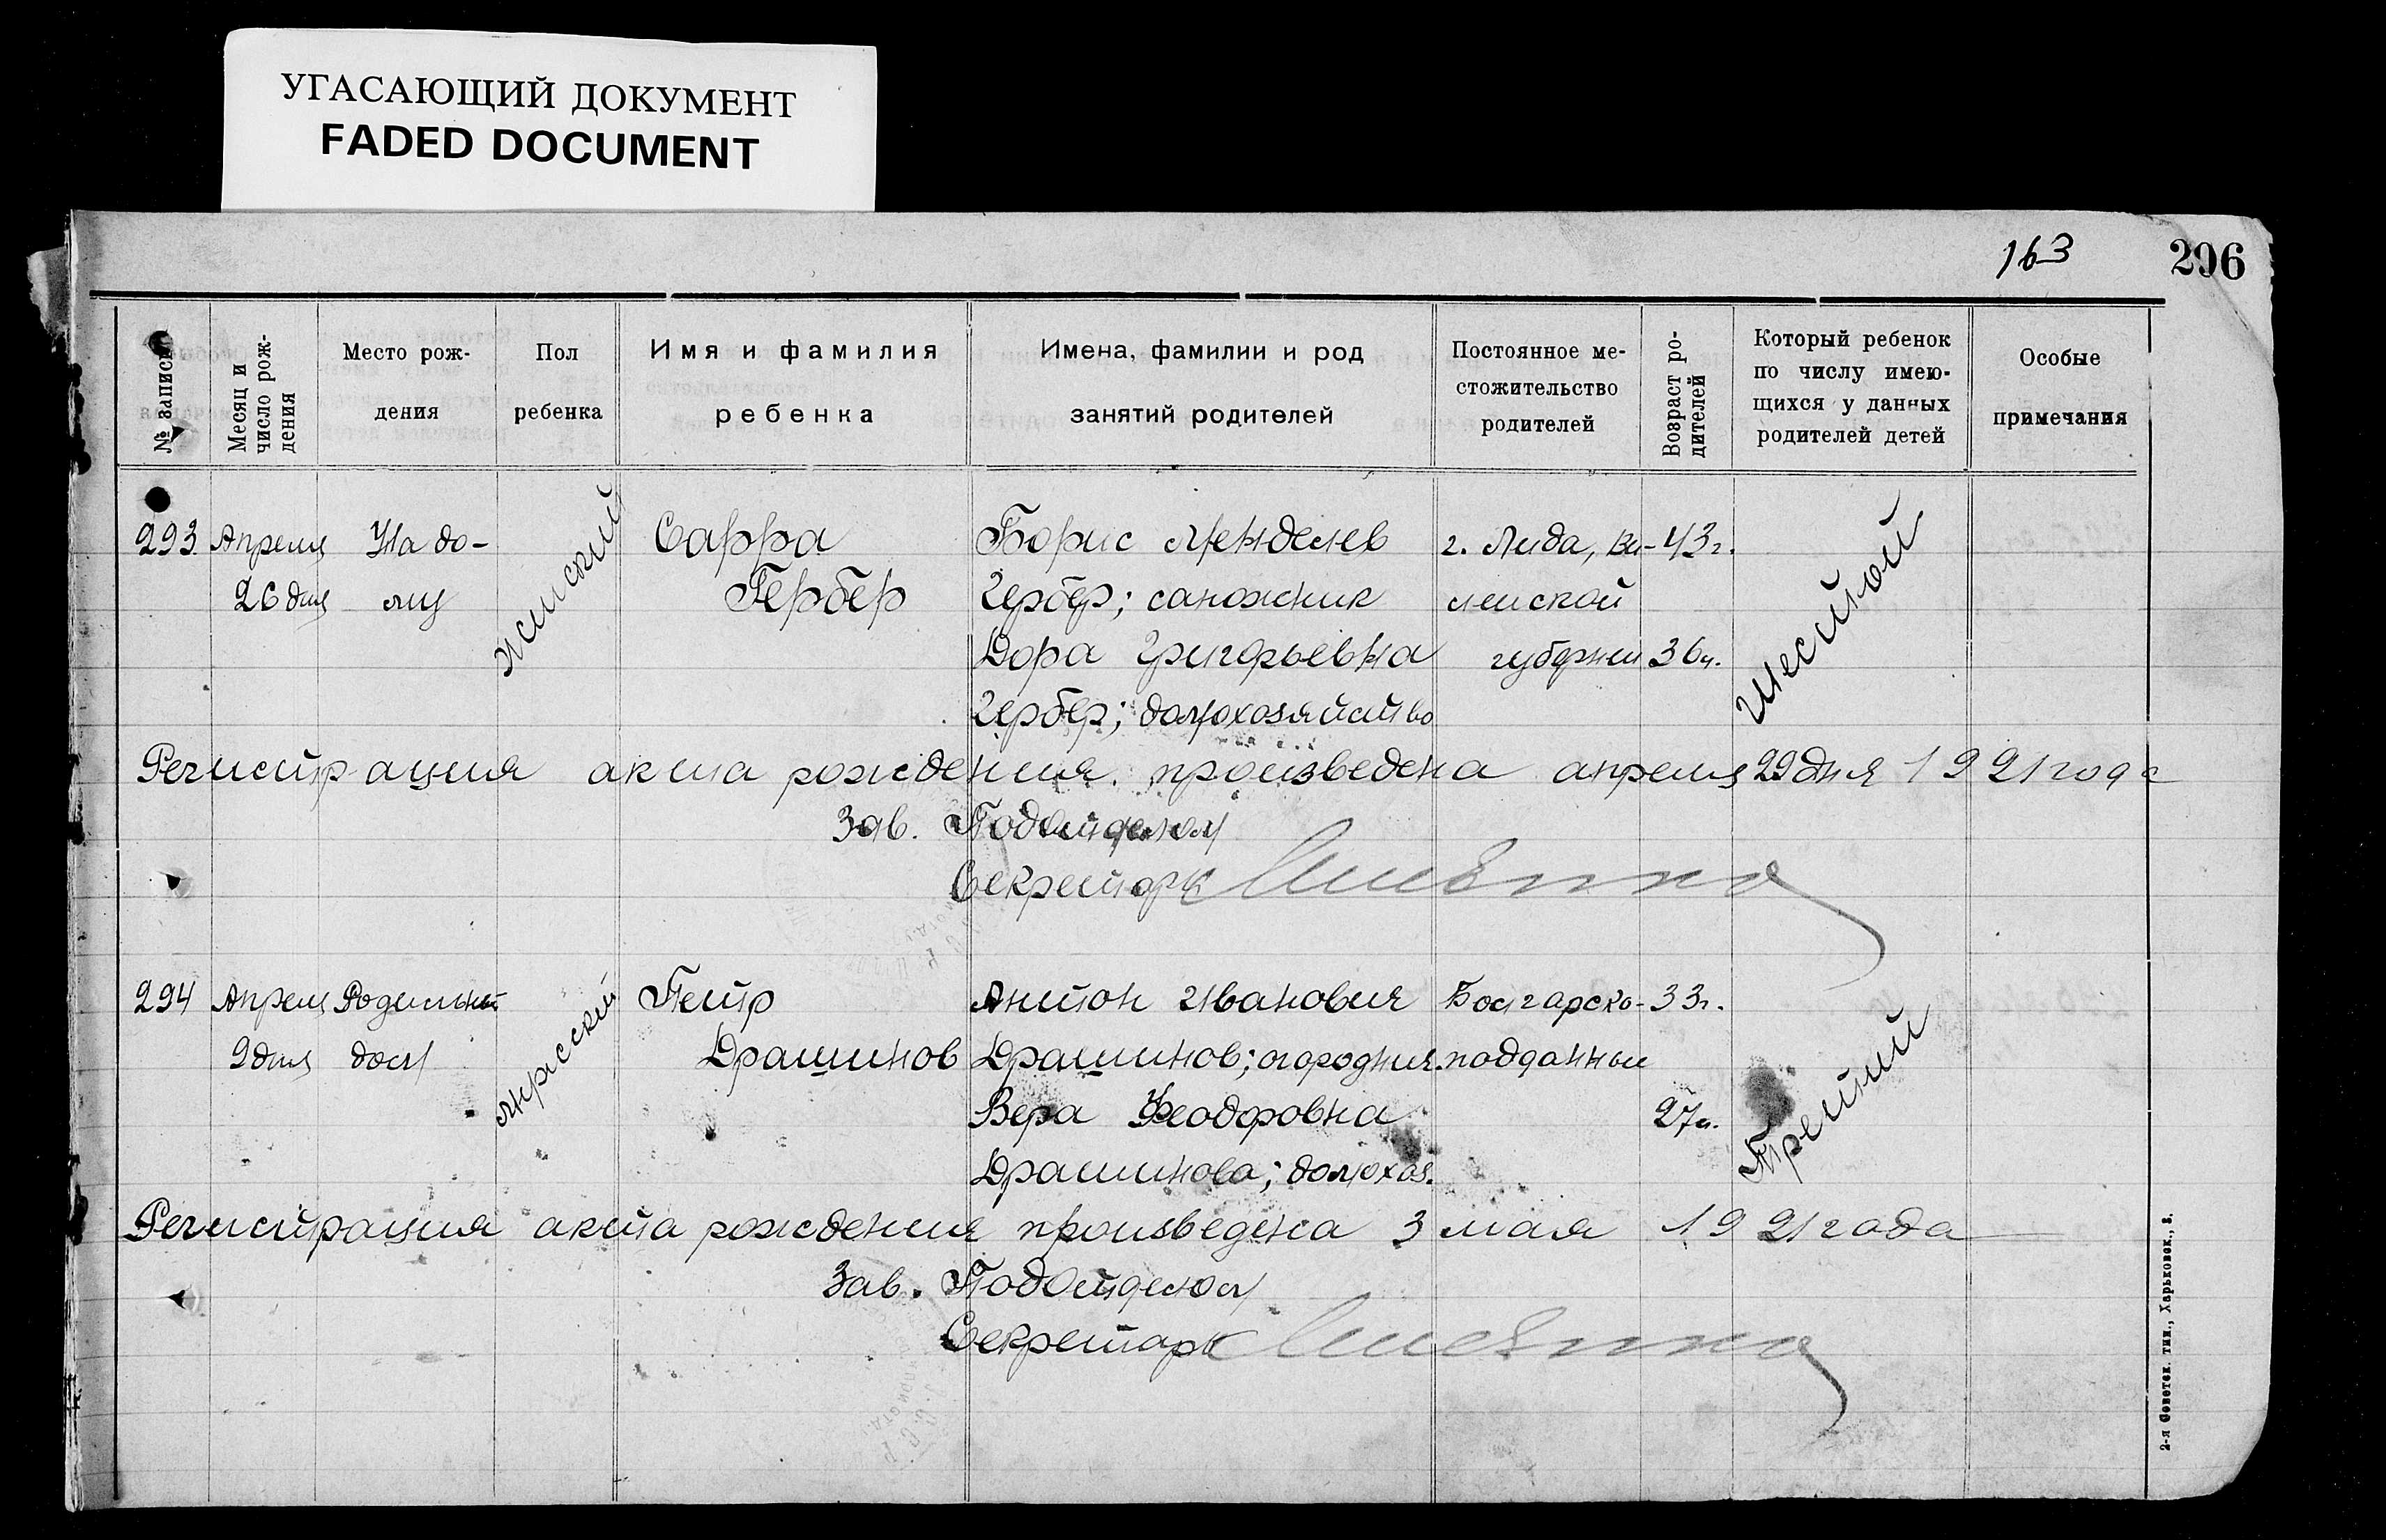 УГАСАЮЩИЙ ДОКУМЕНТ
FADED DOCUMENT
163
296
№ записи
Месяц и число рождения
Место рож-
дения
Пол
ребенка
Имя и фамилия
ребенка
Имена, фамилии и род
занятий родителей
Постоянное ме-
стожительство
родителей
Возраст ро-
дителей
Который ребенок
по числу имею-
щихся у данных
родителей детей
Особые
примечания
293. Апреля На до- женский Сарра Борис Менделев г. Лида, Ви- 43 г. шестой
26 дня му Гербер Гербер; сапожник ленской
Дора Григорьевна губернии 36 л.
Гербер; домохозяйство
Регистрация акта рождения произведена апреля 29 дня 1921 года
Зав. Подотделом
Секретарь
294 Апреля Родильный мужской Петр Антон Иванович Болгарско- 33 г. Третий
9 дня дом Драшинов Драшинов; огородник подданные
Вера Феодоровна 27 л.
Драшинова; домохоз.
Регистрация акта рождения произведена 3 мая 1921 года
Зав. Подотделом
Секретарь
2-я Советск. тип., Харьковск.,